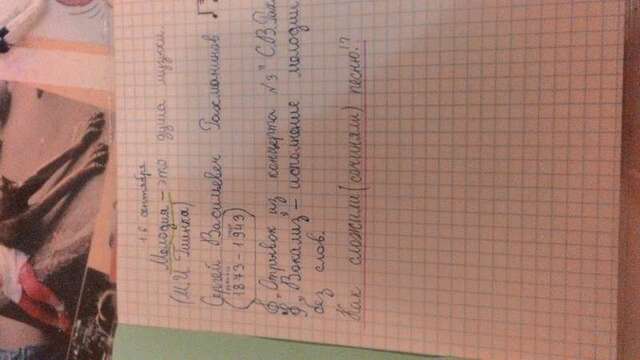 16 сентября
Мелодия – это душа музыки.
(М.И Глинка)
Сергей Васильевич Рахманинов
(1873 – 1943)
„Отрывок из концерта №3" С.В.Рах
„Вокализ" – исполнение мелодии
без слов.
Как сложили (сочиняли) песню!?